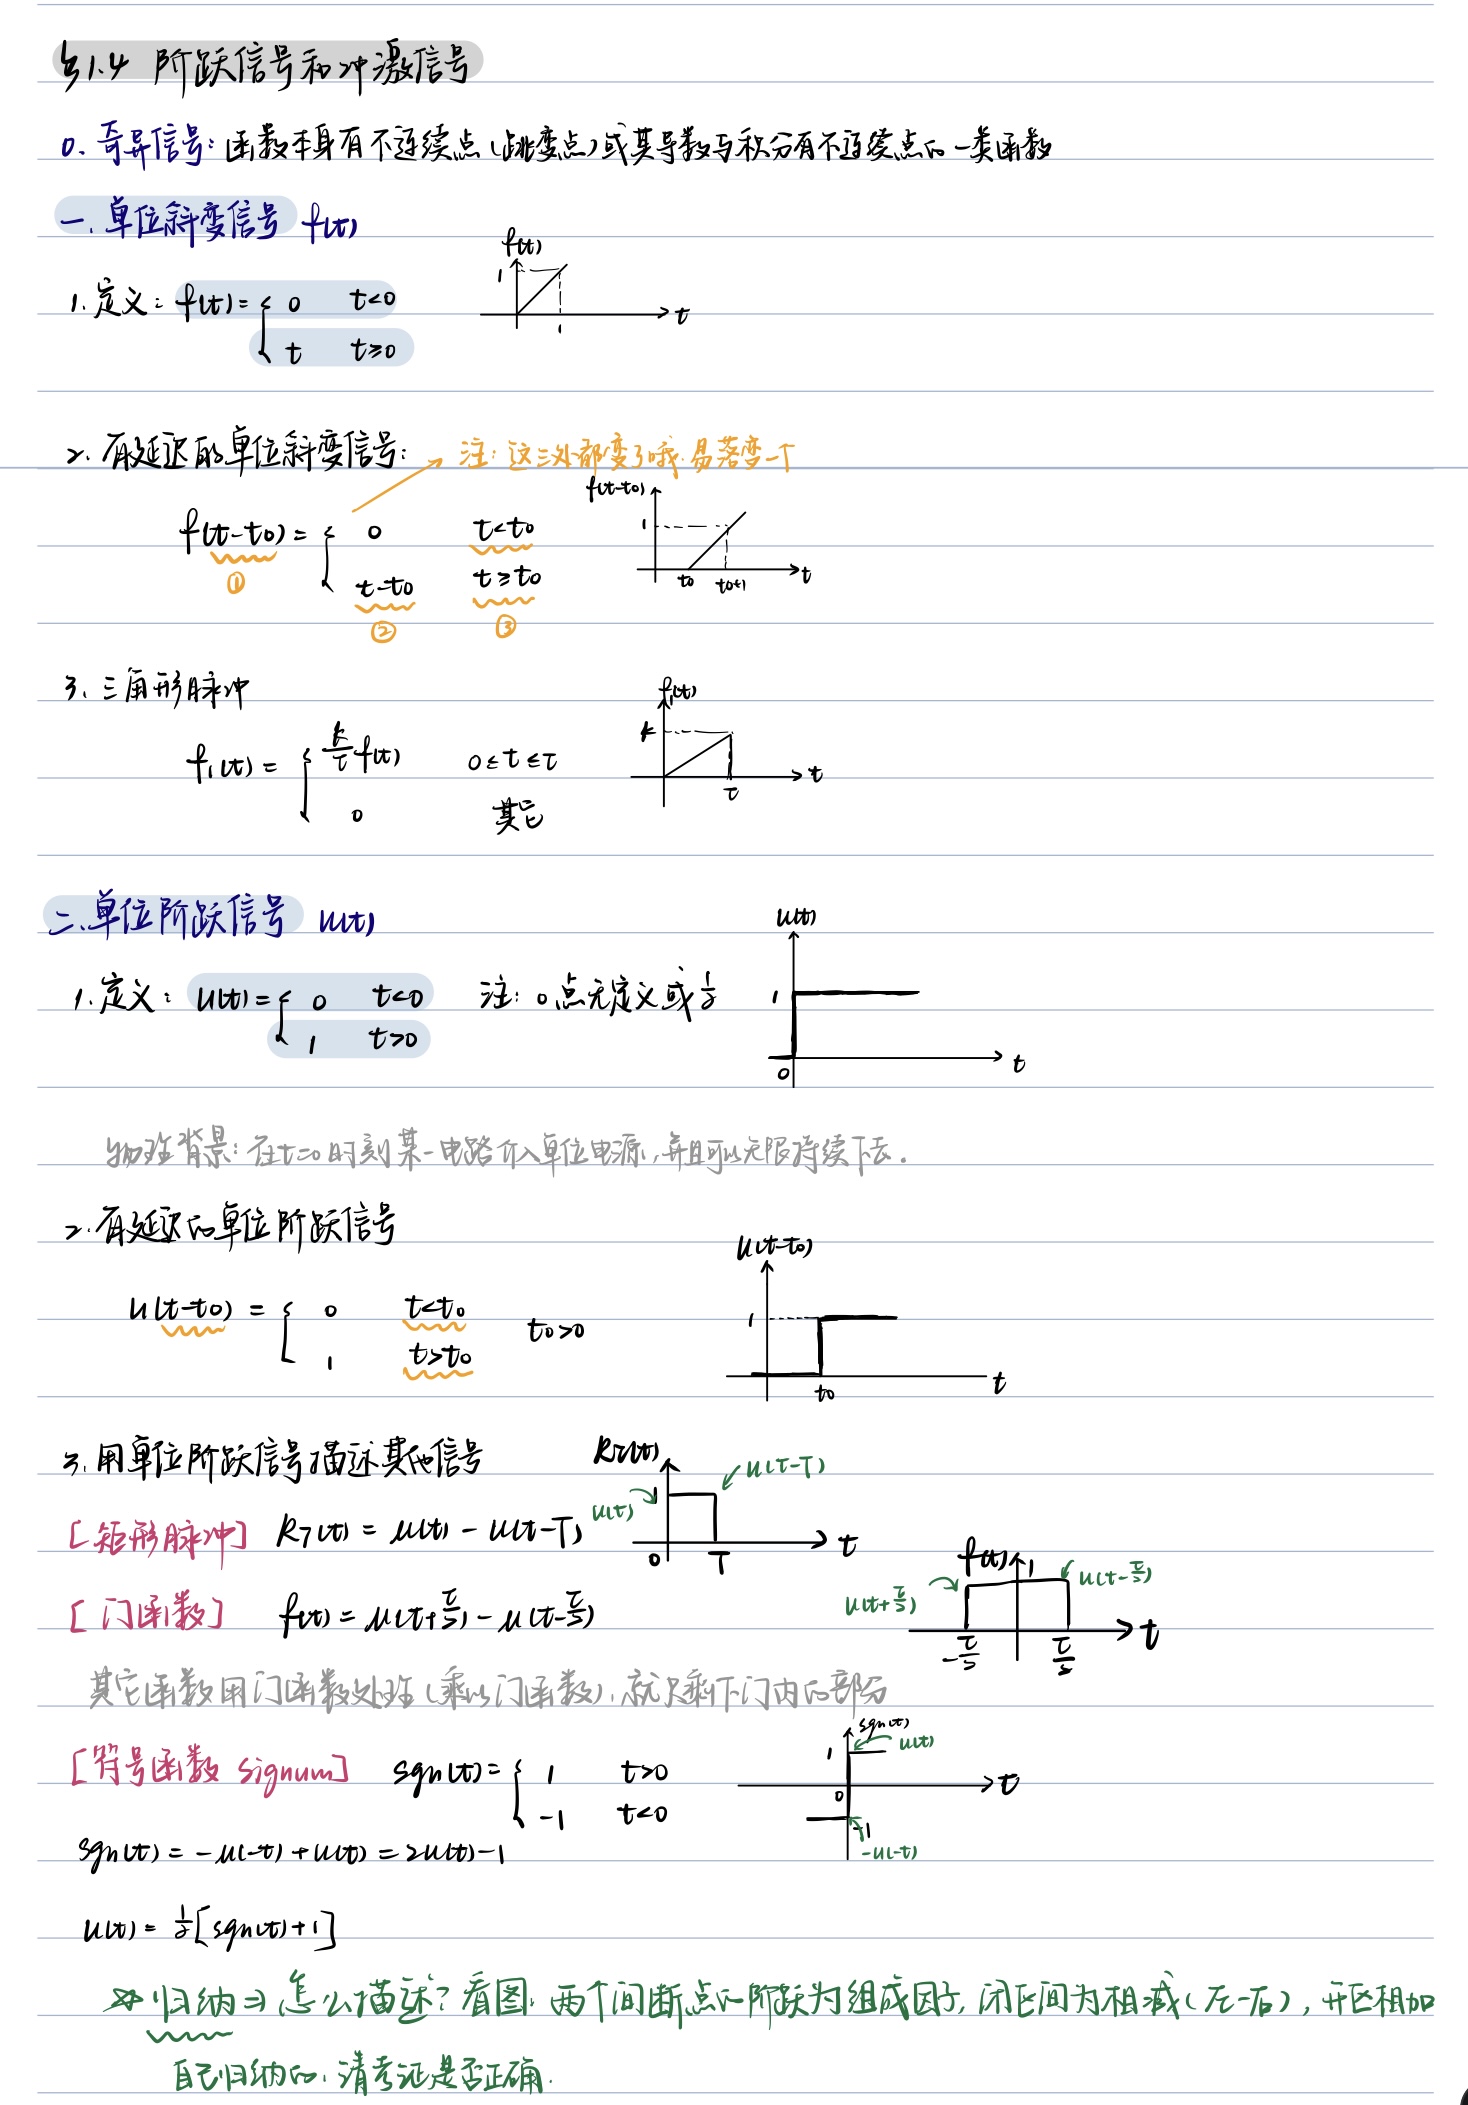 §1.4 阶跃信号和冲激信号
0. 奇异信号: 函数本身有不连续点(跳变点)或其导数与积分有不连续点的一类函数
一. 单位斜变信号 f(t)
f(t)
1
1
t
1. 定义: f(t)= { 0 t<0
t t≥0
2. 有延迟的单位斜变信号:
→ 注: 这三处都变了哦. 易落变一个
f(t-t0)= { 0 t<t0
t-t0 t≥t0
① ② ③
f(t-t0)
1
t0 t0+1 t
3. 三角形脉冲
f1(t)= { k/τ f(t) 0≤t≤τ
0 其它
f1(t)
k
τ t
二. 单位阶跃信号 u(t)
1. 定义: u(t)= { 0 t<0 注: 0点无定义或1/2
1 t>0
u(t)
1
0 t
物理背景: 在t=0时刻某一电路介入单位电源,并且可以无限持续下去.
2. 有延迟的单位阶跃信号
u(t-t0) = { 0 t<t0 t0>0
1 t>t0
u(t-t0)
1
t0 t
3. 用单位阶跃信号描述其他信号
[矩形脉冲] RT(t) = u(t) - u(t-T)
Rτ(t)
u(t) 1 u(t-T)
0 T t
[门函数] f(t) = u(t+τ/2) - u(t-τ/2)
f(t) 1
u(t+τ/2) u(t-τ/2)
-τ/2 τ/2 t
其它函数用门函数处理(乘以门函数), 就只剩下门内的部分
[符号函数 signum] sgn(t)= { 1 t>0
-1 t<0
sgn(t)
1 u(t)
0 t
-1
-u(-t)
sgn(t) = -u(-t) + u(t) = 2u(t)-1
u(t) = 1/2[sgn(t)+1]
☆ 归纳⇒ 怎么描述? 看图, 两个间断点的阶跃为组成因子, 闭区间为相减(左-右), 开区相加
自己归纳的, 请考证是否正确.